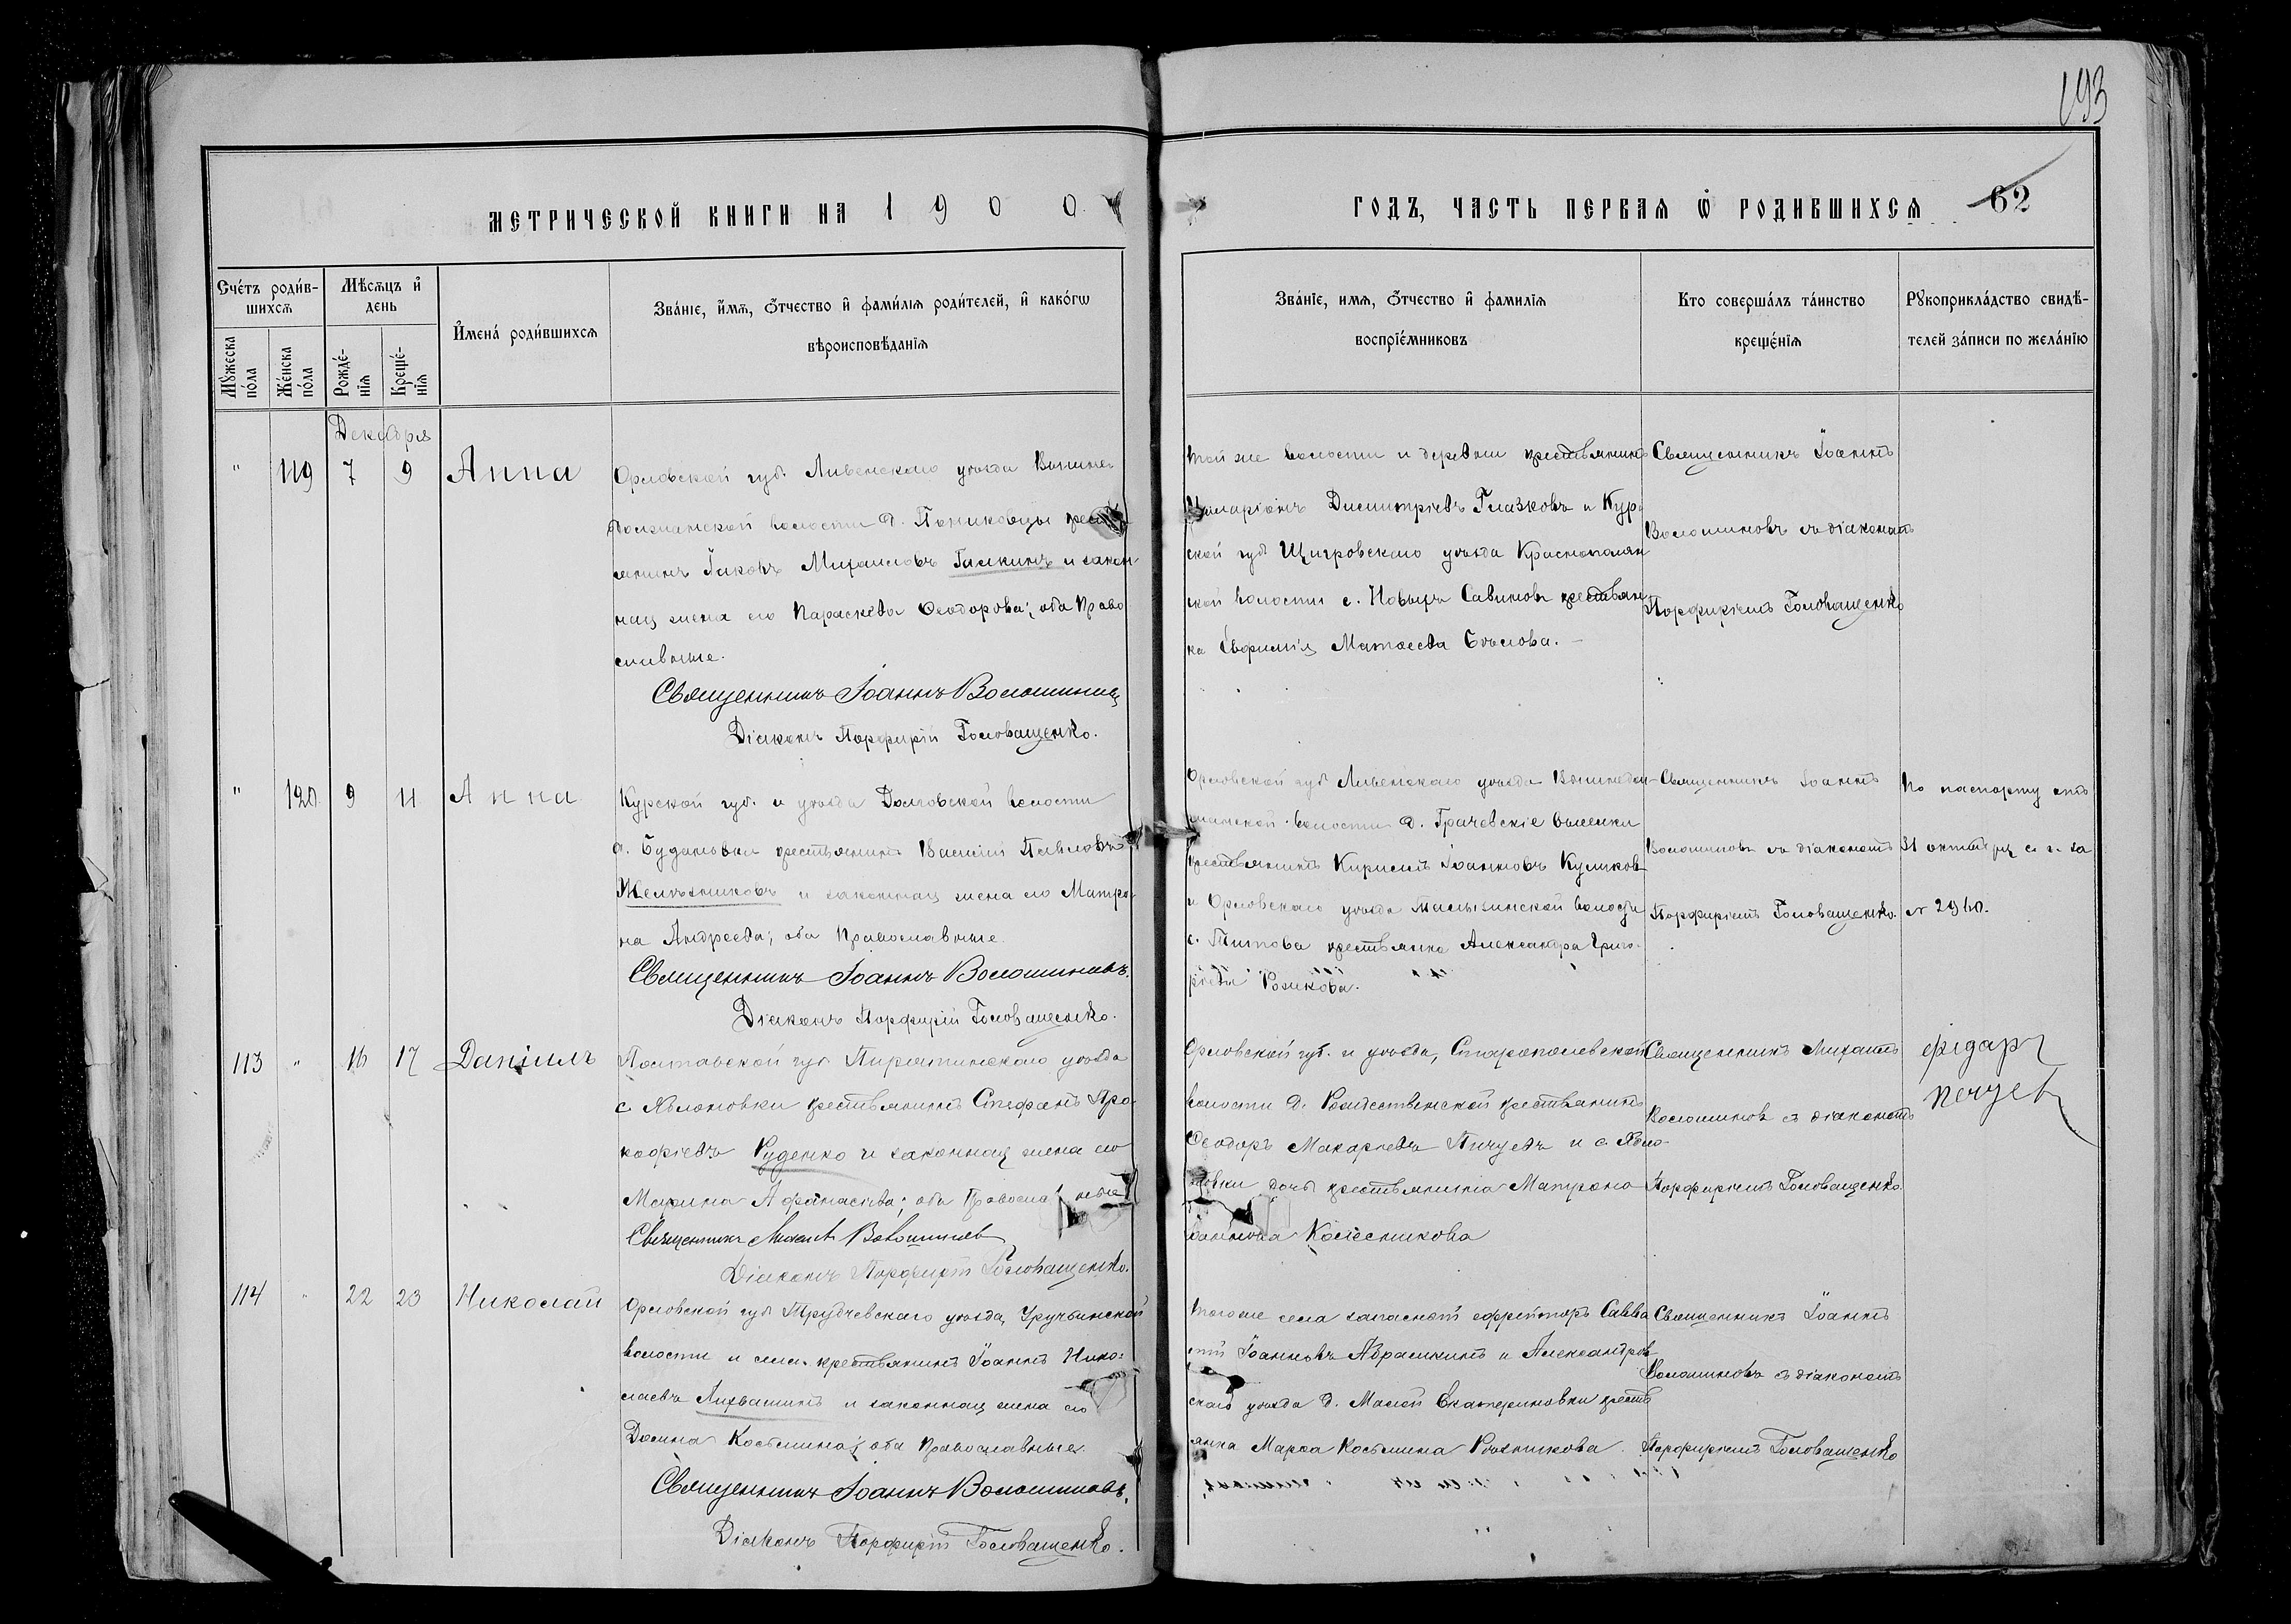 193
МЕТРИЧЕСКОЙ КНИГИ НА 1900
ГОДЪ, ЧАСТЬ ПЕРВАЯ Ѡ РОДИВШИХСЯ 62
Счéтъ роди́вшихся
Мужеска по́ла
Же́нска по́ла
Мѣ́сяцъ и день
Рожде́нія
Креще́нія
Имена́ роди́вшихся
Зва́ніе, и́мя, ѻ́тчество и фами́лія роди́телей, и како́гѡ
вѣроисповѣ́данія
Зва́ніе, имя, ѻ́тчество и фамилія
воспріе́мниковъ
Кто соверша́лъ та́инство
креще́нія
Рꙋкоприкла́дство свидѣ́-
телей за́писи по жела́нію
Декабря
" 119 7 9 Анна
Орловской губ. Ливенскаго уѣзда Вышне-
Должанской волости д. Пониковцы крестья
янинъ Іаковъ Михаиловъ Галкинъ и закон-
ная жена его Параскева Ѳеодорова; оба Право
славные.
Священникъ Іоаннъ Волошиновъ
Діаконъ Порфирій Головащенко.
той же волости и деревни крестьянинъ
Иларіонъ Димитріевъ Глазковъ и Кур-
ской губ Щигровскаго уѣзда Краснополян
ской волости с. Новыхъ Савиновъ крестьян
ка Евфимія Матѳеева Бѣлова. –
Священникъ Іоаннъ
Волошиновъ съ діакономъ
Порфиріемъ Головащенко
" 120 9 11 Анна
Курской губ. и уѣзда Долговской волости
д. Будановки крестьянинъ Василій Павловъ
Желѣзниковъ и законная жена его Матро-
на Андреева; оба Православные
Священникъ Іоаннъ Волошиновъ.
Діаконъ Порфирій Головащенко.
Орловской губ Ливенскаго уѣзда Вышнедол-
жанской волости д. Грачевскіе выселки
крестьянинъ Кириллъ Іоанновъ Куликовъ
и Орловскаго уѣзда волости
с. Титова крестьянка Александра Григо-
ріева
Священникъ Іоаннъ
Волошиновъ съ діакономъ
Порфиріемъ Головащенко.
По паспорту отъ
31 октября с. г. за
№ 2940.
113 " 16 17 Даніилъ
Полтавской губ Пирятинскаго уѣзда
с Яблоновки крестьянинъ Стефанъ Про-
кофіевъ Руденко и законная жена его
Марина Афанасіева; оба Православные
Священникъ Михаилъ Волошиновъ
Діаконъ Порфирій Головащенко.
Орловской губ. и уѣзда, Старопольевской
волости д. Рождественской крестьянинъ
Ѳеодоръ Макаріевъ Пичуевъ и с. Ябло-
новки дочь крестьянина Матрона
Іоаннова Колесникова
Священникъ Михаилъ
Волошиновъ съ діакономъ
Порфиріемъ Головащенко.
фідаръ
печуев
114 " 22 23 Николай
Орловской губ Трубчевскаго уѣзда, Уручьинской
волости и села крестьянинъ Іоаннъ Нико-
лаевъ Лихвашинъ и законная жена его
Домна Косьмина; оба Православные
Священникъ Іоаннъ Волошиновъ,
Діаконъ Порфирій Головащенко.
того же села запасной ефрейторъ Савва
тій Іоанновъ Абрамкинъ и Александров
скаго уѣзда д. Малой Екатериновки кресть
янка Марѳа Косьмина
Священникъ Іоаннъ
Волошиновъ съ діакономъ
Порфиріемъ Головащенко